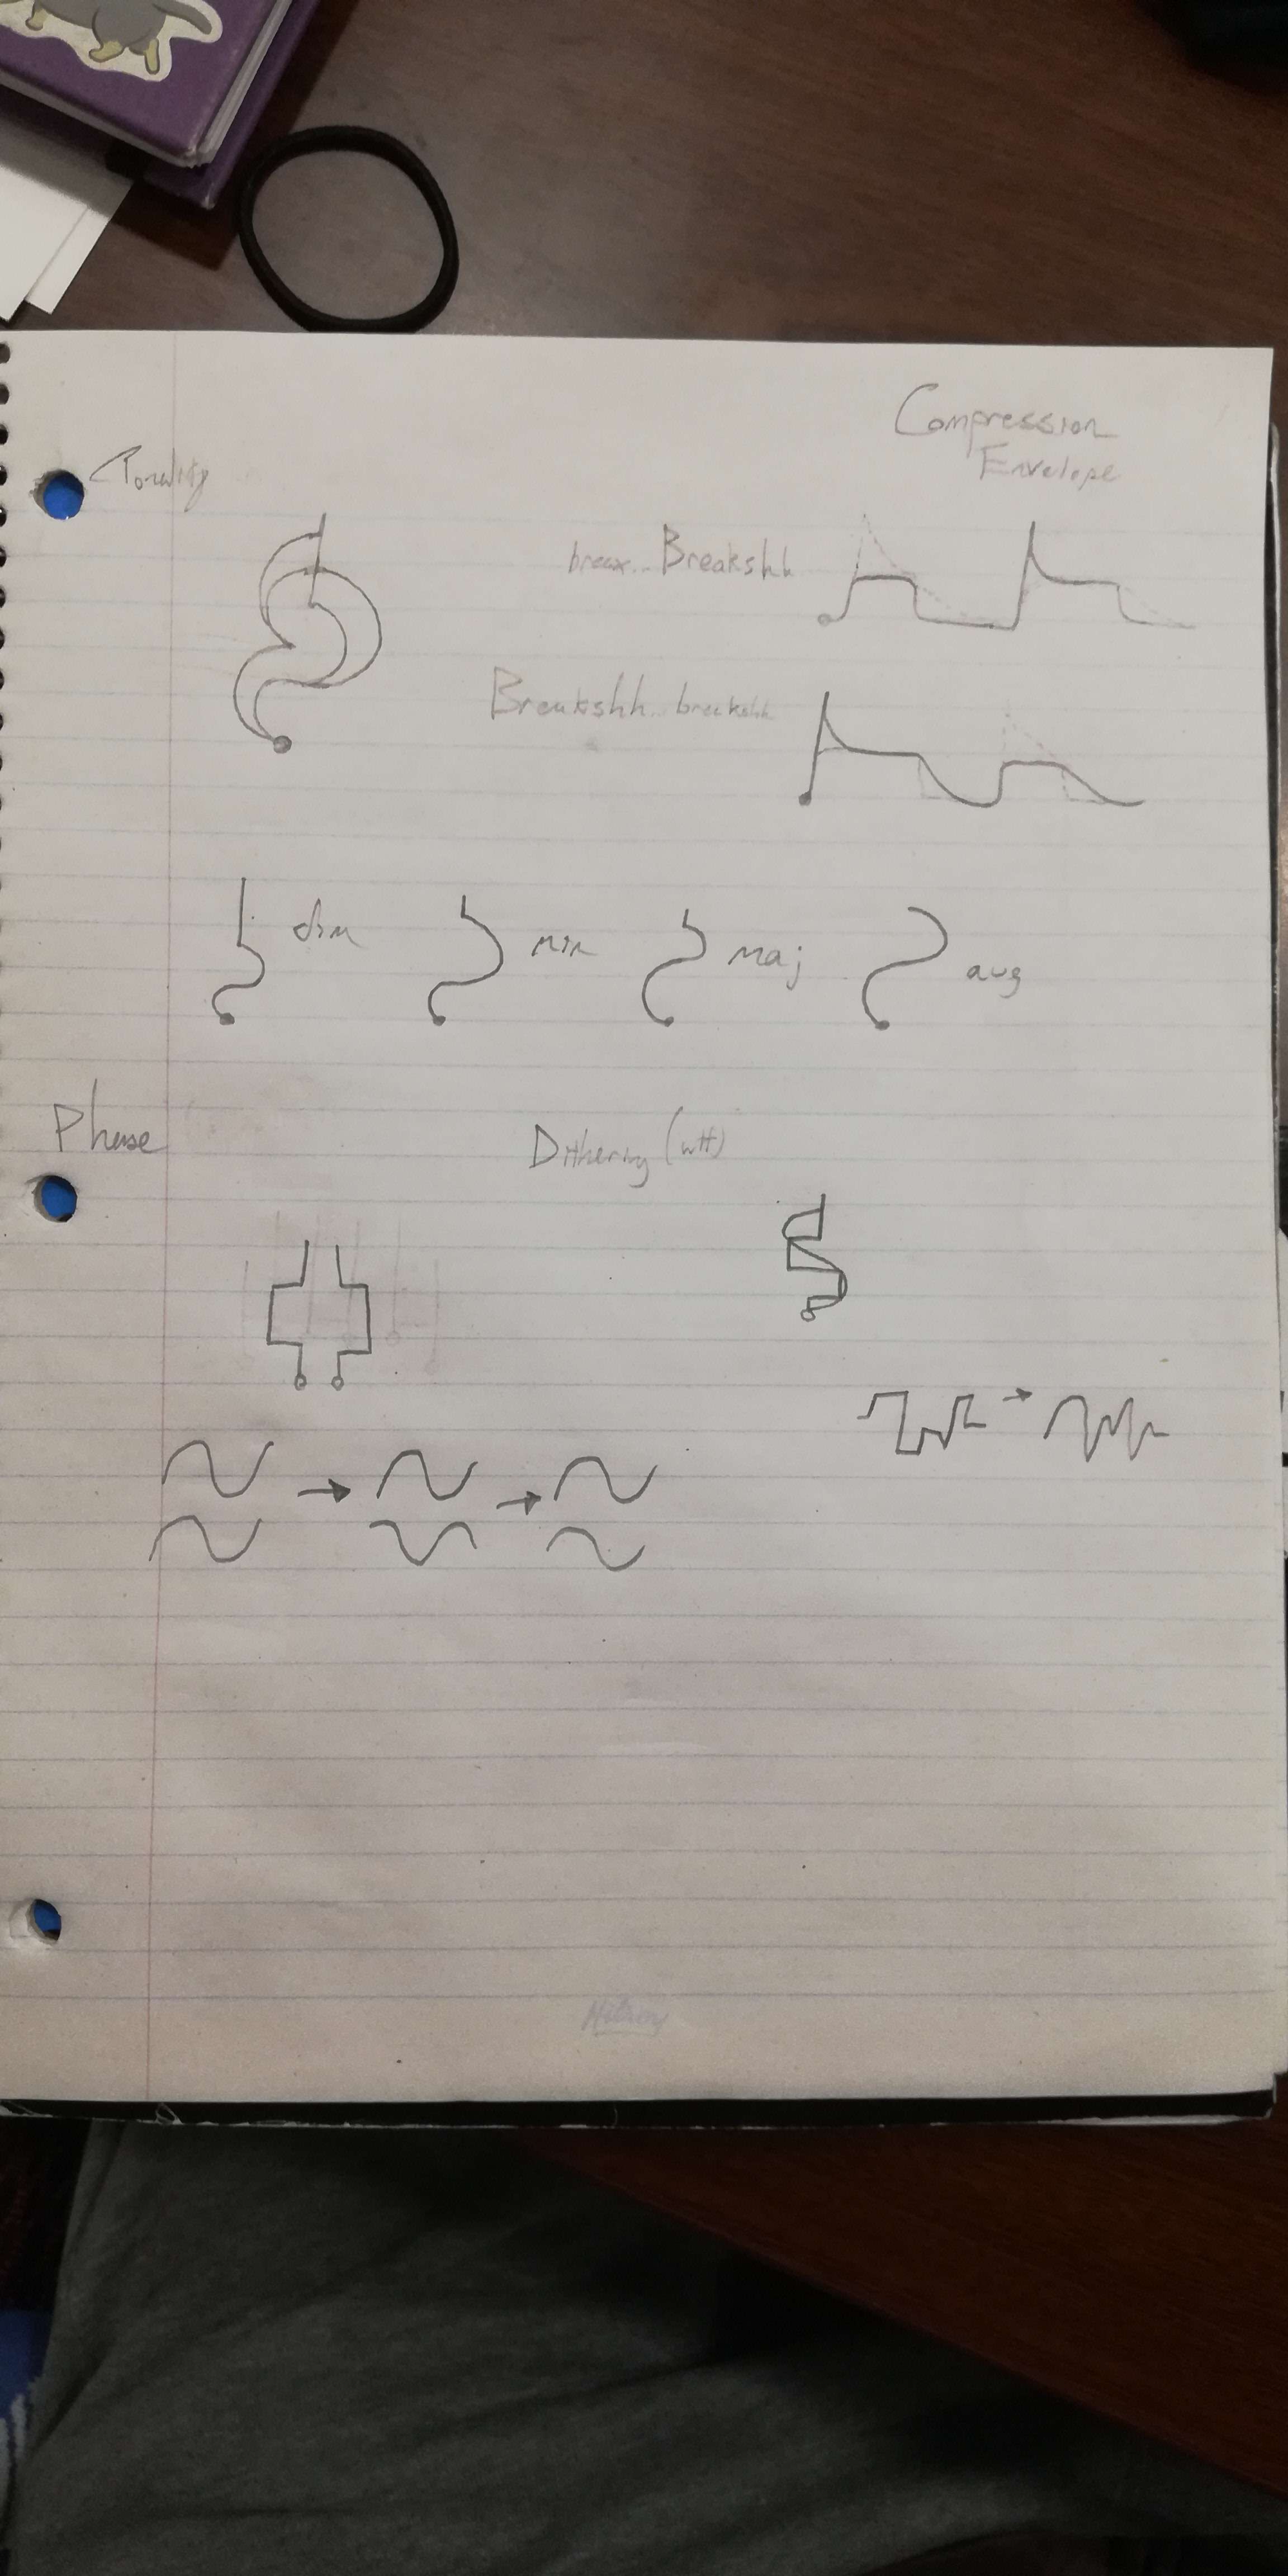 Compression
Envelope
Tonality
breax.. Breakshh
Breakshh.. breakshh
dim min maj aug
Phase
Dithering (wtf)
Hilroy